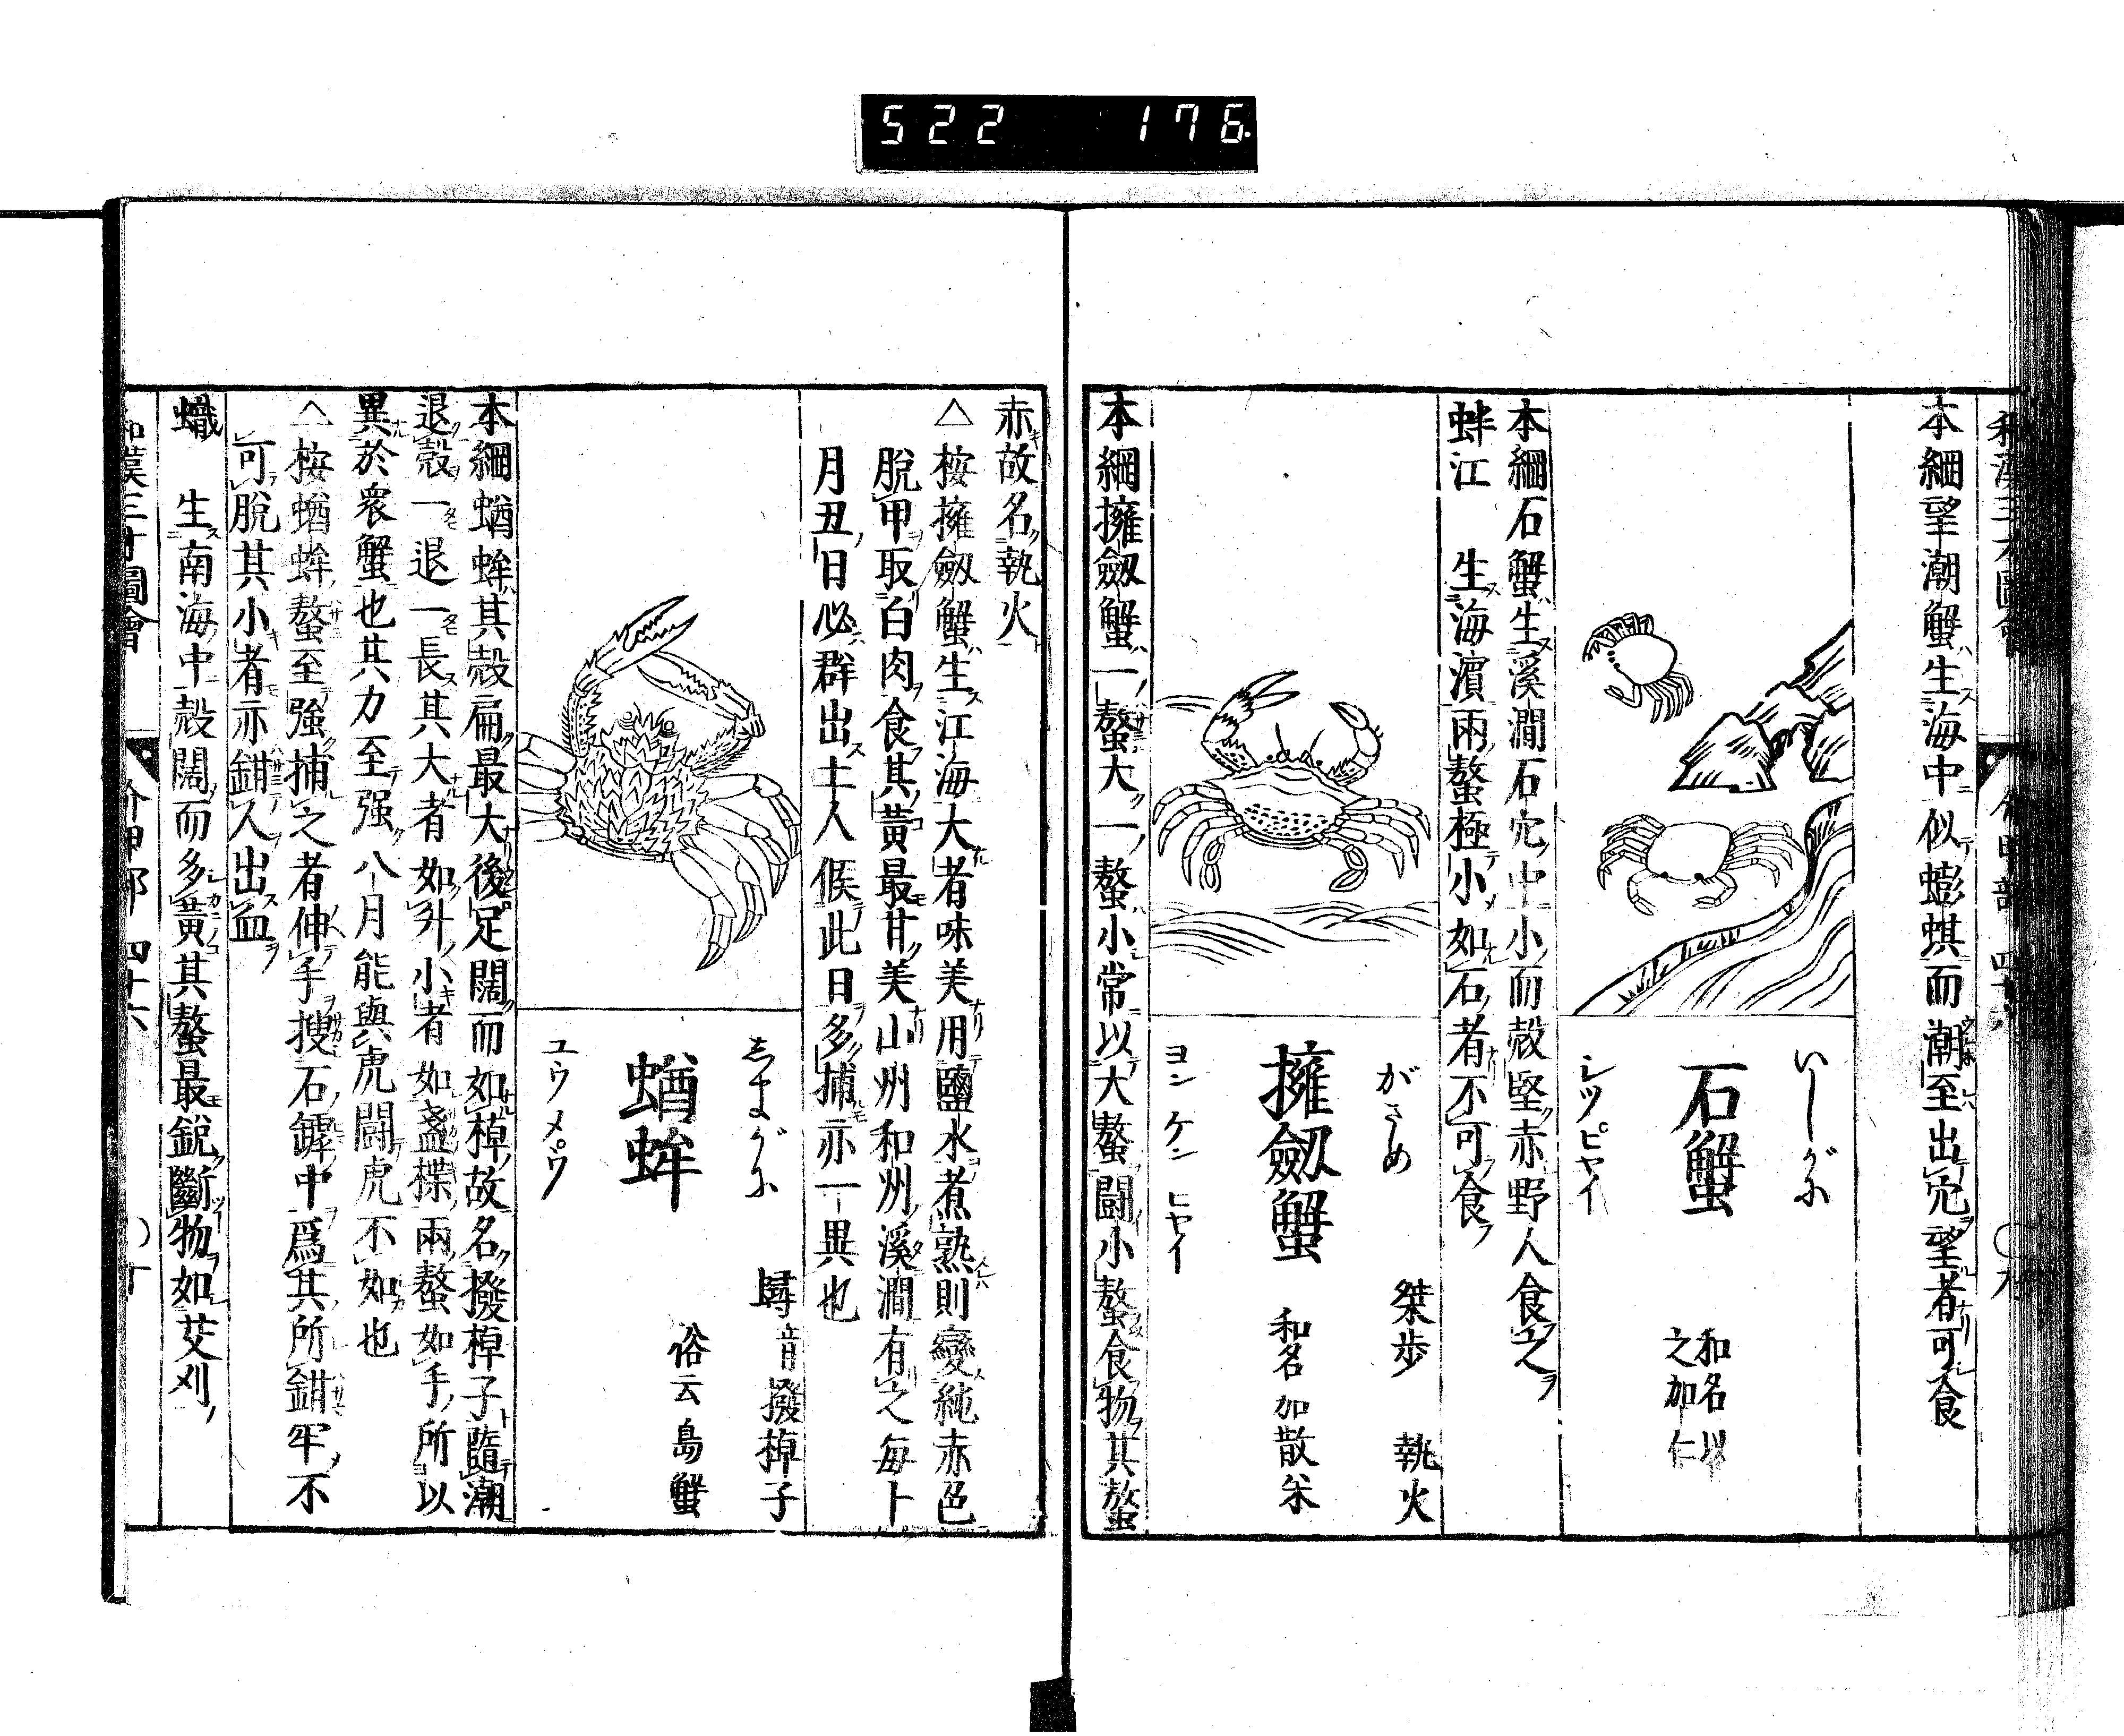 522 176
本綱望潮蟹生海中似蟛蜞而潮至出穴望者可食
いしがに
石蟹
和名以
之加仁
シツピヤイ
本綱石蟹生溪澗石穴中小而殼堅赤野人食之
蚌江 生海濵兩螯極小如石者不可食
がさめ
桀歩 執火
擁劔蟹
和名加散米
ヨン ケン ヒヤイ
本綱擁劔蟹一螯大一螯小常以大螯闘小螯食物其螯
赤故名執火
△按擁劔蟹生江海大者味美用鹽水煮熟則變純赤色
脫甲取白肉食其黃最甘美山州和州溪澗有之每卜
月丑日必群出土人候此日多捕亦一異也
志まがに
蟳 音 撥棹子
蝤蛑
俗云島蟹
ユウ メ゜ウ
本綱蝤蛑其殼扁最大後足闊而如棹故名撥棹子隨潮
退殼一退一長其大者如升小者如盞楪兩螯如手所以
異於衆蟹也其力至强八月能與虎闘虎不如也
△按蝤蛑螯至強捕之者伸手搜石罅中爲其所鉗牢不
可脫其小者亦鉗人出血
蟙 生南海中殼闊而多黃其螯最銳斷物如艾刈
和漢三才圖會 介甲部 四十六